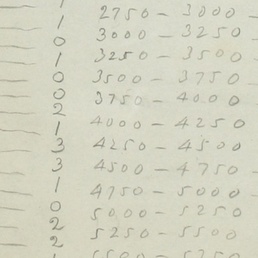 1 2750 – 3000 –
1 3000 – 3250
0 3250 – 3500 –
1 3500 – 3750
0 3750 – 4000
0 4000 – 4250
2 4250 – 4500
1 4500 – 4750 –
3 4750 – 5000 –
3 5000 – 5250
1 5250 – 5500
0 5500 – 5750
2
2
1